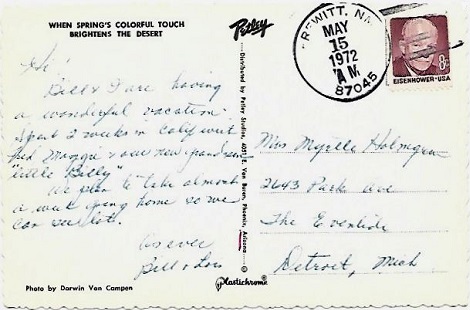 WHEN SPRING'S COLORFUL TOUCH
BRIGHTENS THE DESERT
Hi!
Bill & I are having
a wonderful vacation.
Spent 2 weeks in Calif with
Fred, Margie & our new grandson
"Little Billy"
We plan to take almost
a week going home so we
can see lots.
As ever
Bill & Lois
Photo by Darwin Van Campen
Petley
Distributed by Petley Studios, 4051 E. Van Buren, Phoenix, Arizona
Plastichrome
PREWITT, NM
MAY
15
1972
A.M.
87045
8¢
EISENHOWER·USA
Miss Myrtle Holmgren
2643 Park Ave
The Eventide
Detroit, Mich